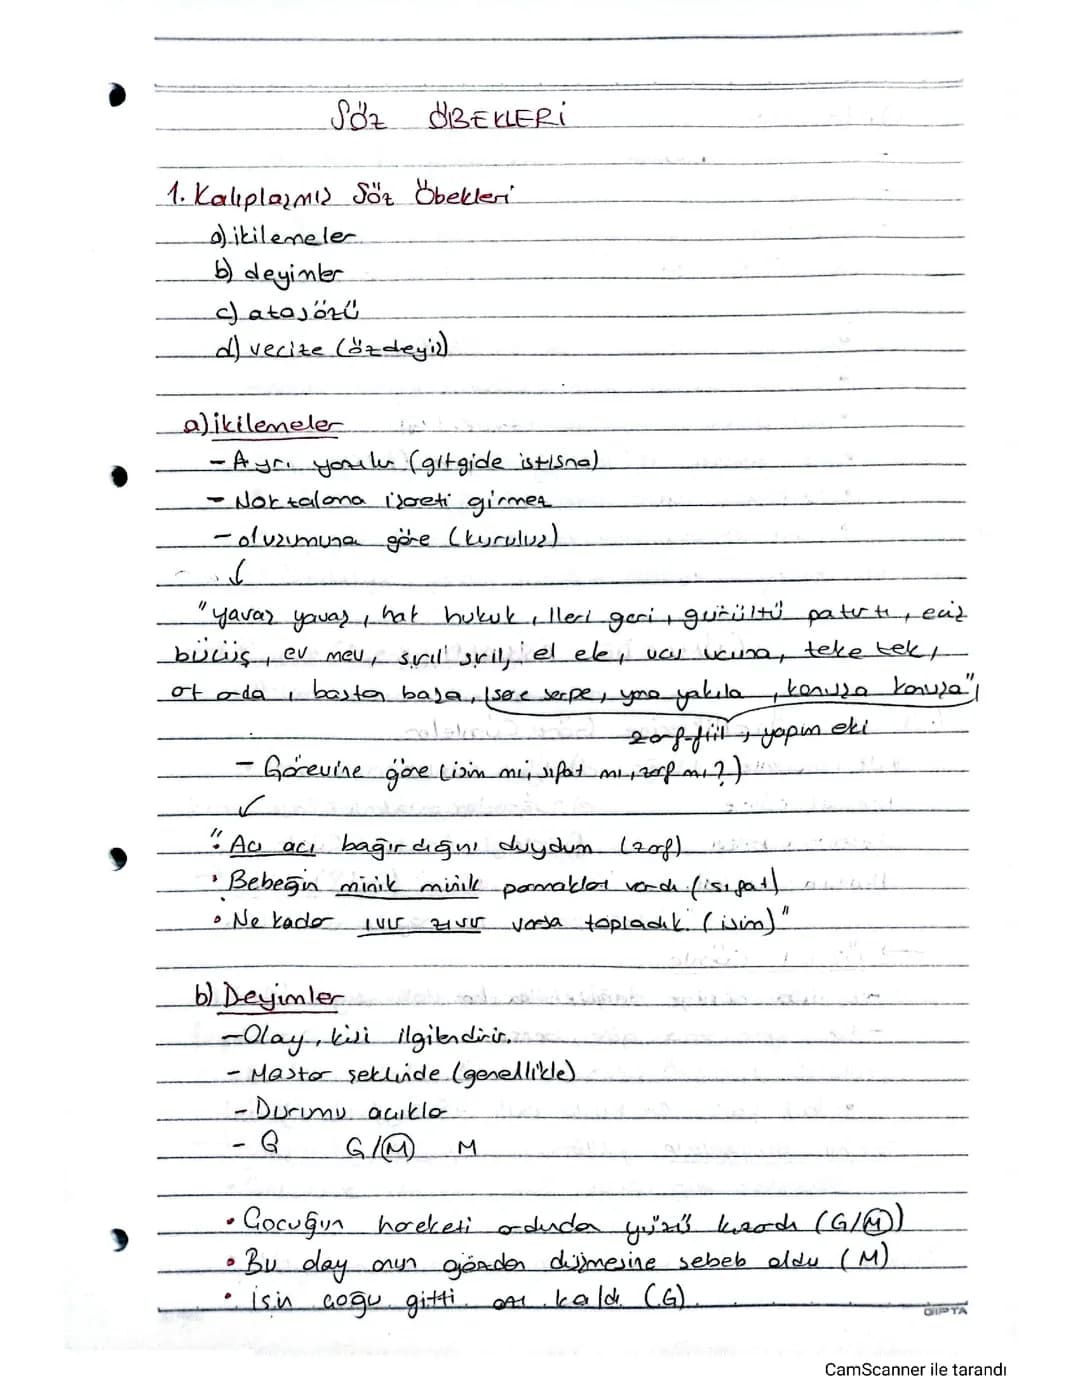 SÖZ ÖBEKLERİ
1. Kalıplaşmış Söz Öbekleri
a) ikilemeler
b) deyimler
c) atasözü
d) vecize (özdeyiş)
a) ikilemeler
- Ayrı yazılır (gitgide istisna)
- Noktalama işareti girmez
- oluşumuna göre (kuruluş)
↓
"yavaş yavaş, hak hukuk, ileri geri, gürültü patırtı, eciş
bücüş, ev mev, şırıl şırıl, el ele, ucu ucuna, teke tek,
ot orda, baştan başa, sere serpe, yana yakıla, konuşa konuşa"
zarf-fiil, yapım eki
- Görevine göre (isim mi, sıfat mı, zarf mı?)
"• Acı acı bağırdığını duydum (zarf)
• Bebeğin minik minik parmakları vardı (sıfat)
• Ne kadar ıvır zıvır varsa topladık. (isim)"
b) Deyimler
- Olay, kişi ilgilendirir.
- Mastar şeklinde (genellikle)
- Durumu açıkla
- G G/M M
• Çocuğun hareketi yüzü kızardı (G/M)
• Bu olay onun gözden düşmesine sebeb oldu (M)
• işin çoğu gitti azı kaldı (G)
GIPTA
CamScanner ile tarandı